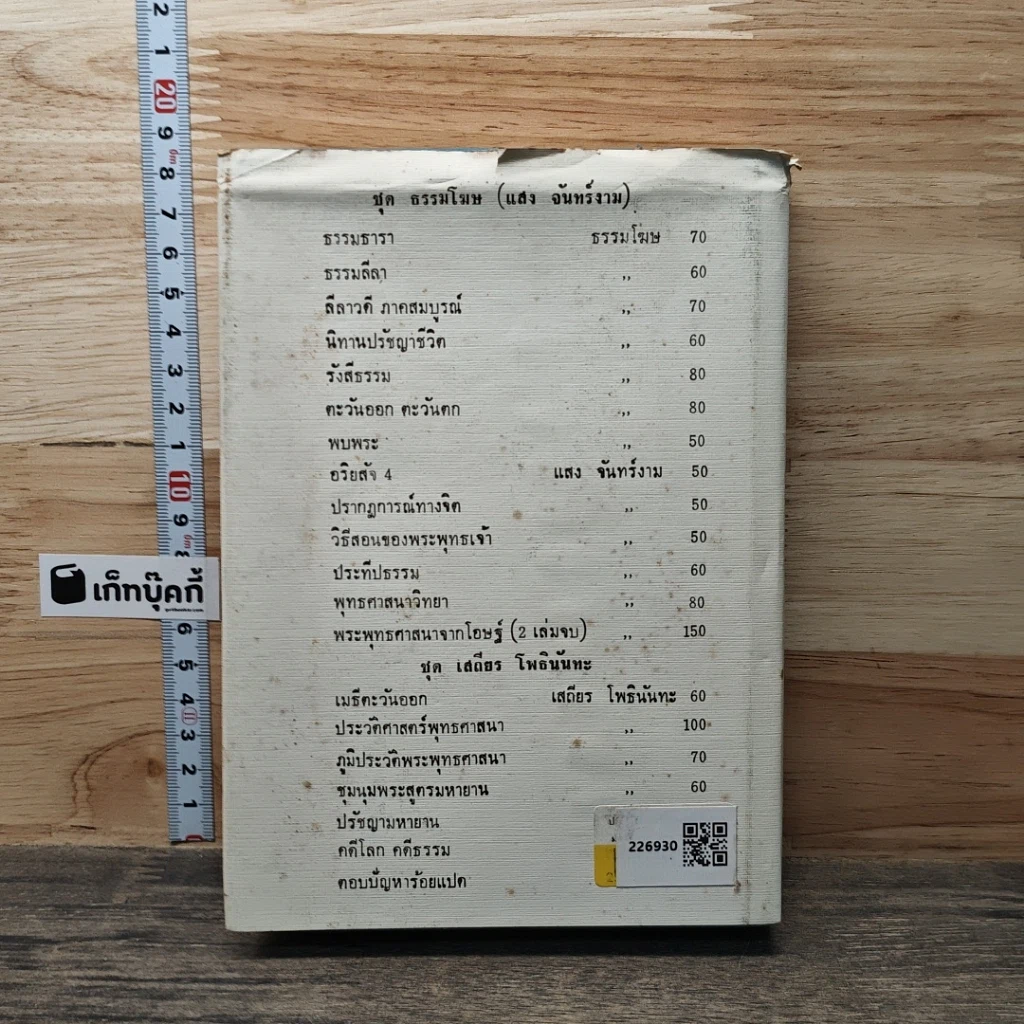 ชุด ธรรมโฆษ (แสง จันทร์งาม)
ธรรมธารา ธรรมโฆษ 70
ธรรมลีลา ,, 60
ลีลาวดี ภาคสมบูรณ์ ,, 70
นิทานปรัชญาชีวิต ,, 60
รังสีธรรม ,, 80
ตะวันออก ตะวันตก ,, 80
พบพระ ,, 50
อริยสัจ 4 แสง จันทร์งาม 50
ปรากฏการณ์ทางจิต ,, 50
วิธีสอนของพระพุทธเจ้า ,, 50
ประทีปธรรม ,, 60
พุทธศาสนาวิทยา ,, 80
พระพุทธศาสนาจากโอษฐ์ (2 เล่มจบ) ,, 150
ชุด เสถียร โพธินันทะ
เมธีตะวันออก เสถียร โพธินันทะ 60
ประวัติศาสตร์พุทธศาสนา ,, 100
ภูมิประวัติพระพุทธศาสนา ,, 70
ชุมนุมพระสูตรมหายาน ,, 60
ปรัชญามหายาน
คดีโลก คดีธรรม
ตอบปัญหาร้อยแปด
226930
เก็ทบุ๊คกี้
2
1
20
9
8
7
6
5
4
3
2
1
10
9
8
6
5
4
3
2
1